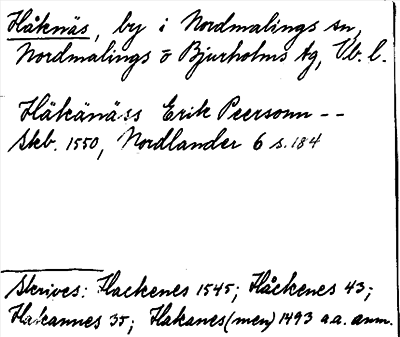 Håknäs, by i Nordmalings sn,
Nordmalings o Bjurholms tg, Vb. l.
Håkänäss Erik Peersonn --
Skb. 1550, Nordlander 6 s. 184
Skrives: Hackenes 1545; Håckenes 43;
Hakannes 35; Hakanes (men) 1493 a.a. anm.